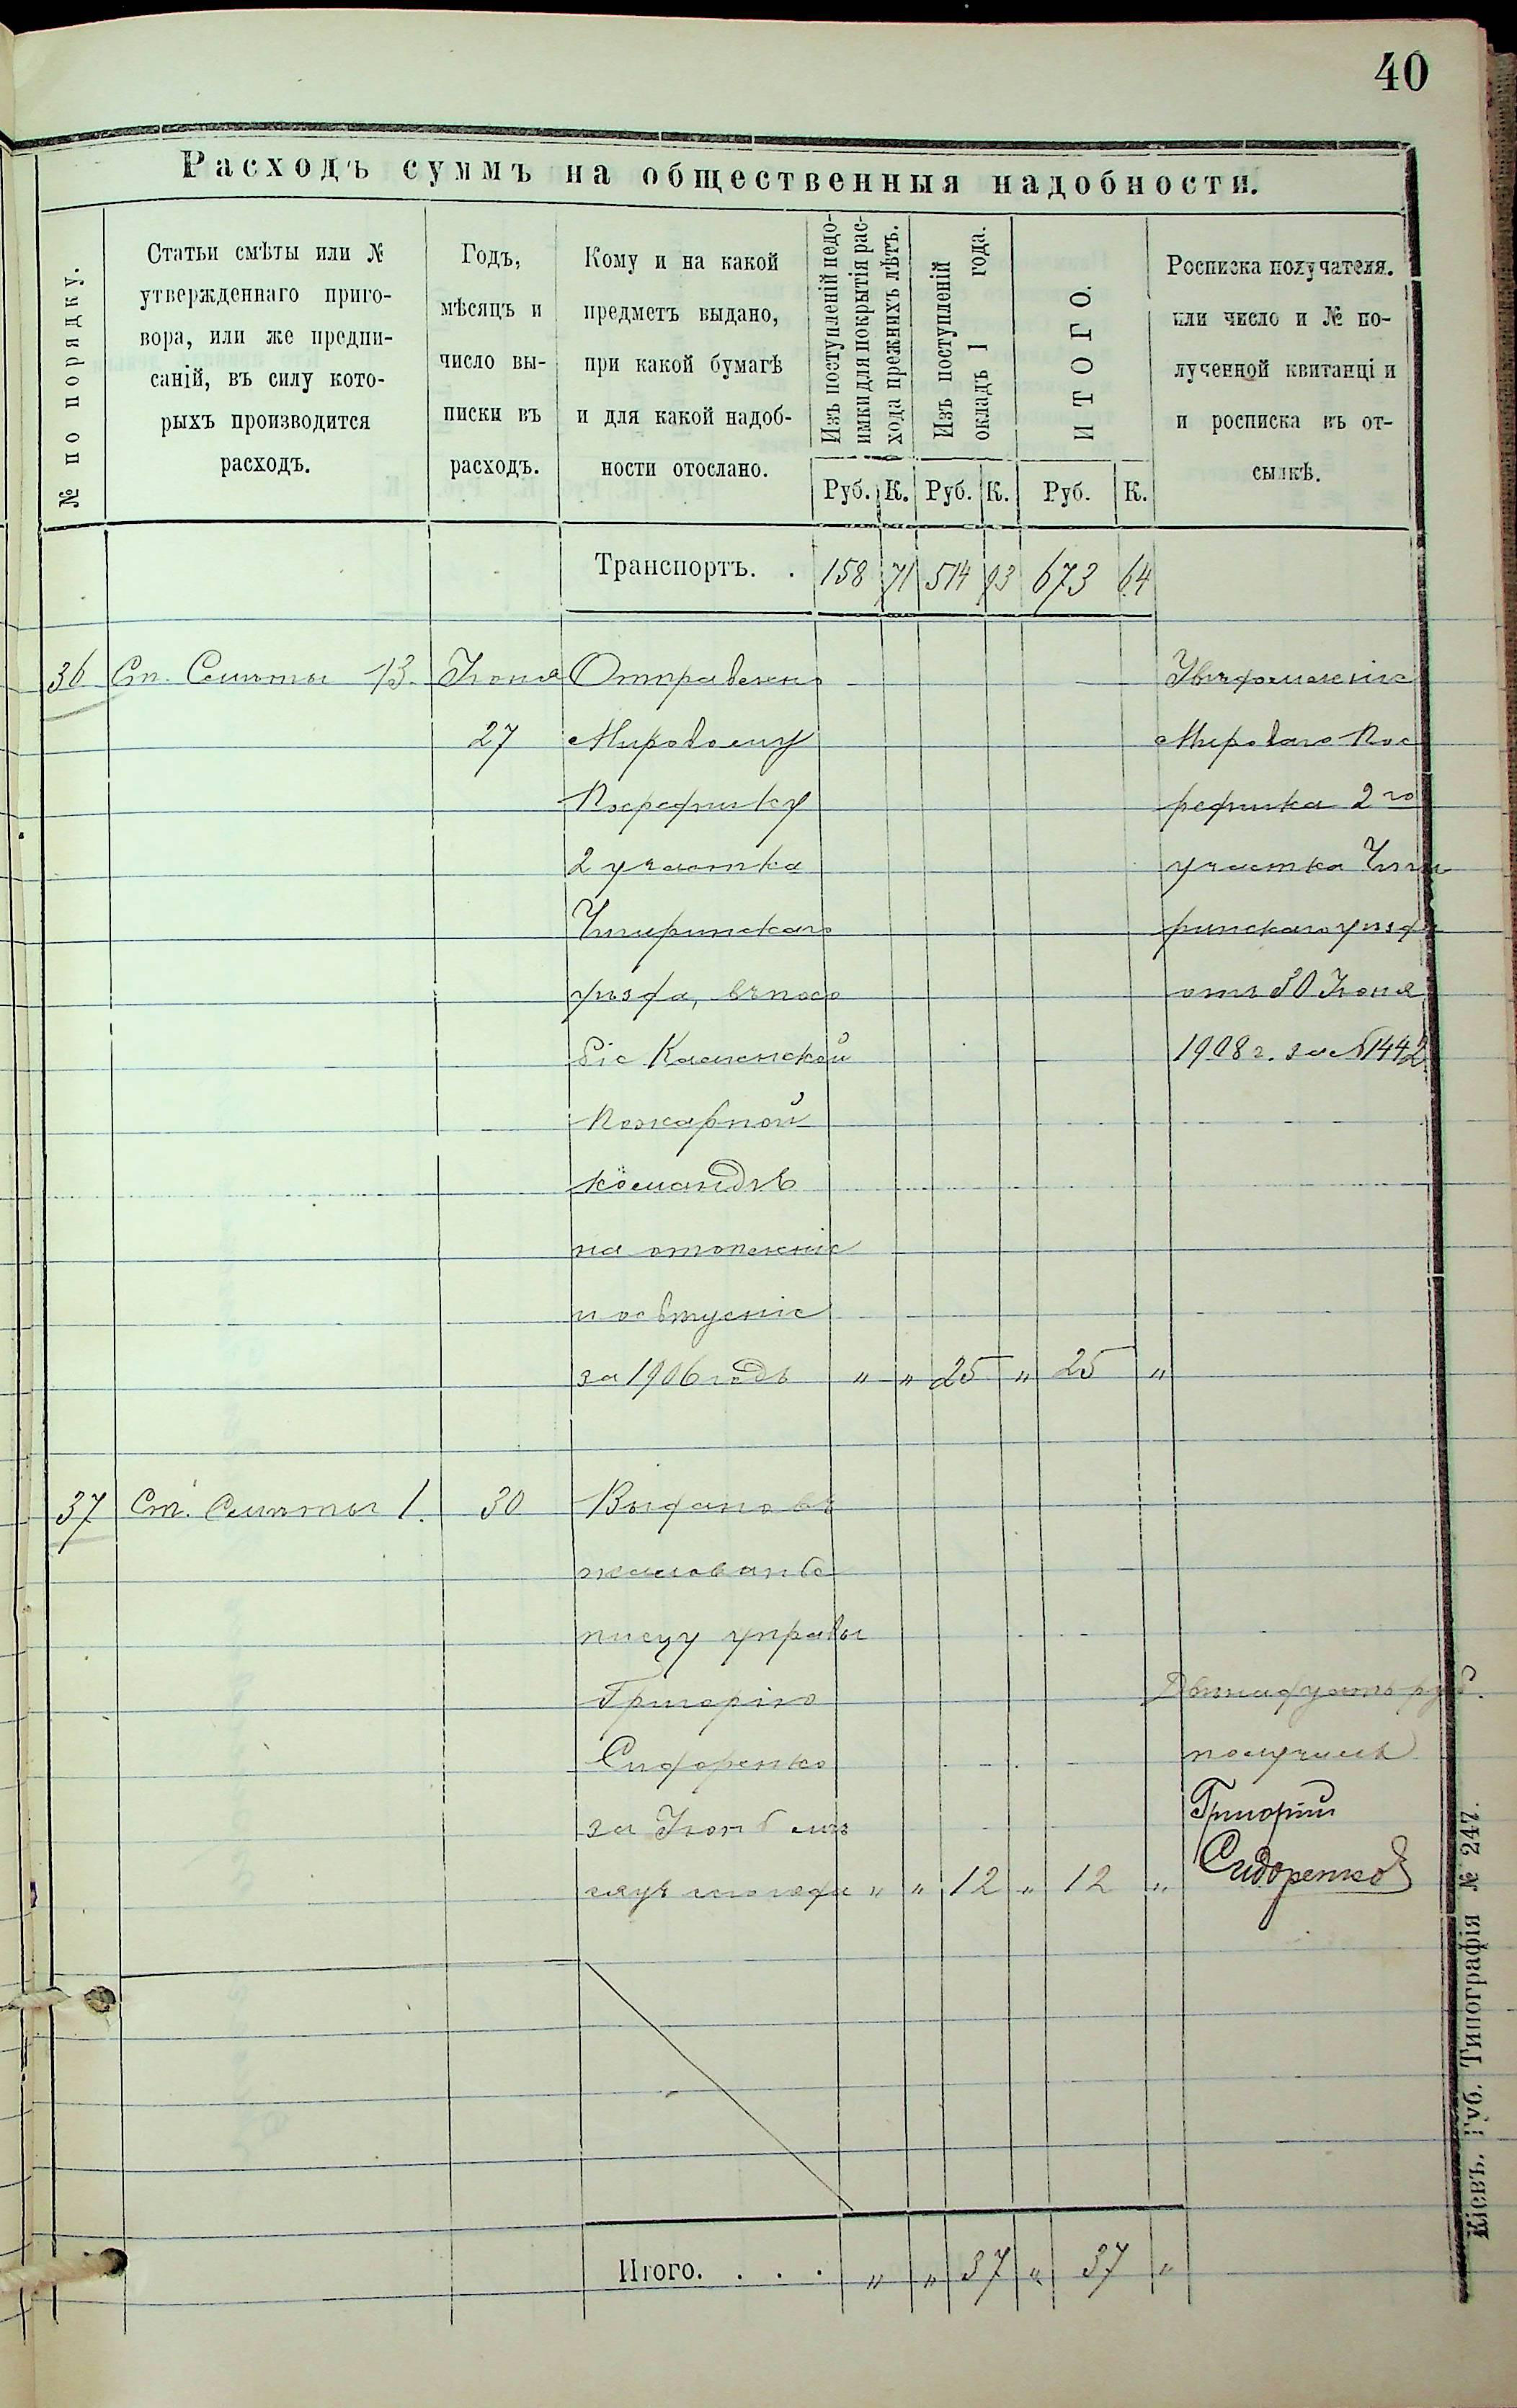 40
Расходъ суммъ на общественныя надобности.
№ по порядку.
Статьи смѣты или №
утвержденнаго приго-
вора, или же предпи-
саній, въ силу кото-
рыхъ производится
расходъ.
Годъ,
мѣсяцъ и
число вы-
писки въ
расходъ.
Кому и на какой
предметъ выдано,
при какой бумагѣ
и для какой надоб-
ности отослано.
Изъ поступленій недо-
имки для покрытія рас-
хода прежнихъ лѣтъ.
Изъ поступленій
окладъ 1 года.
ИТОГО.
Росписка получателя.
или число и № по-
лученной квитанціи
и росписка въ от-
сылкѣ.
Руб. К. Руб. К. Руб. К.
Транспортъ. . 158 71 514 93 673 64
36 Ст. Смѣты 13. Іюня Отправлено Увѣдомленіе
27 Мировому Мироваго Пос
Посреднику редника 2го
2 участка участка Чиги
Чигиринскаго ринскаго уѣзда
уѣзда, въ посо отъ 30 Іюня
біе Каменской 1908 г. за № 1442
Пожарной
командѣ
на отопленіе
и освѣщеніе
за 1906 годъ " " 25 " 25 "
37 Ст. Смѣты 1. 30 Выдано въ
жалованье
писцу управы
Григорію Двѣнадцать руб.
Сидоренко получилъ
за Іюнь мѣ Григорій
сяцъ сего года " " 12 " 12 " Сидоренко
Итого. . . . " " 37 " 37 "
Кіевъ. Губ. Типографія № 247.